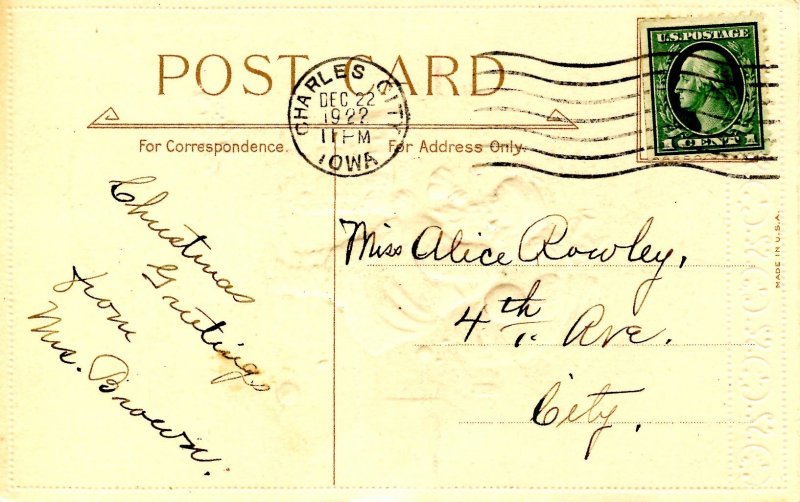 POST CARD
CHARLES CITY
DEC 22
1922
11 PM
IOWA
U.S. POSTAGE
1 CENT 1
For Correspondence.
For Address Only.
Christmas
Greetings
from
Mrs. Brown.
Miss Alice Rowley,
4th Ave.
City.
MADE IN U.S.A.